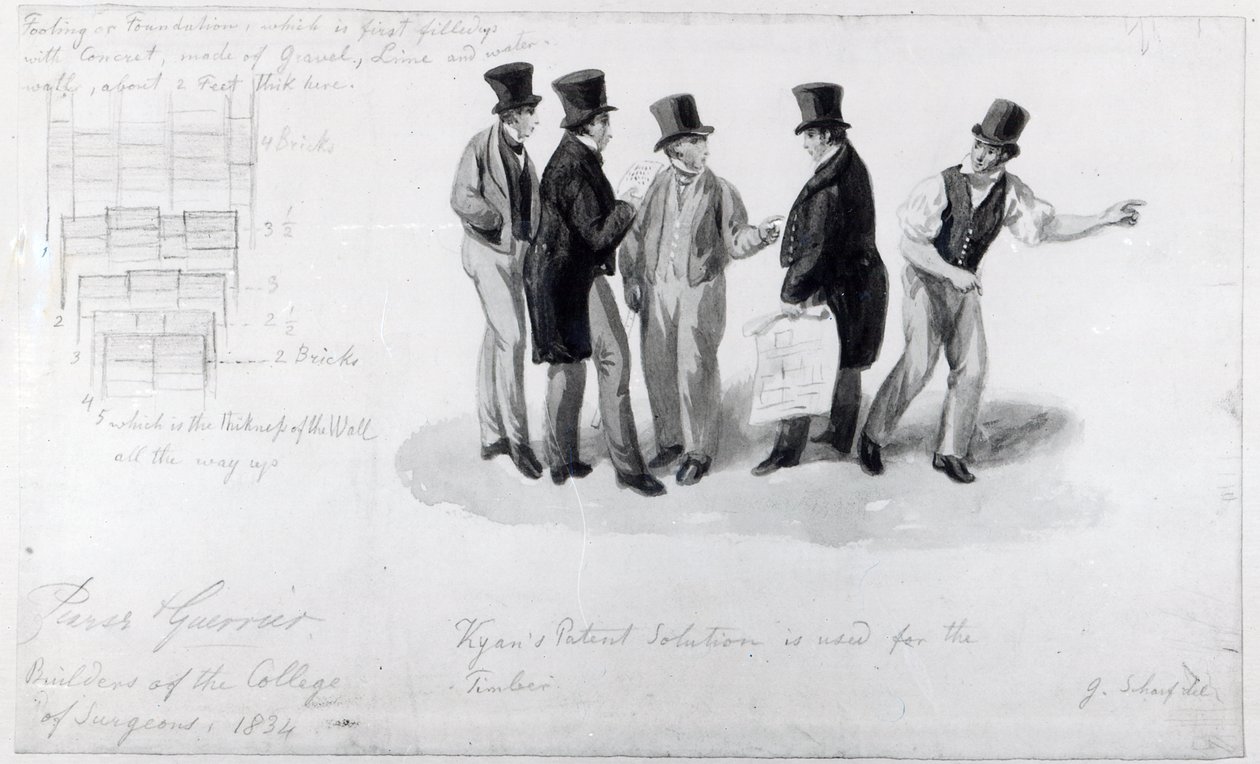 Footing or Foundation, which is first filled up
with Concret, made of Gravel, Lime and water.
wall, about 2 Feet thik here.
4 Bricks
1
3 1/2
3
2
2 1/2
3
2 Bricks
4
5 which is the thikneſs of the Wall
all the way up
& Guerrier
Builders of the College
of Surgeons, 1834
Kyan's Patent Solution is used for the
Timber.
G. Scharf del